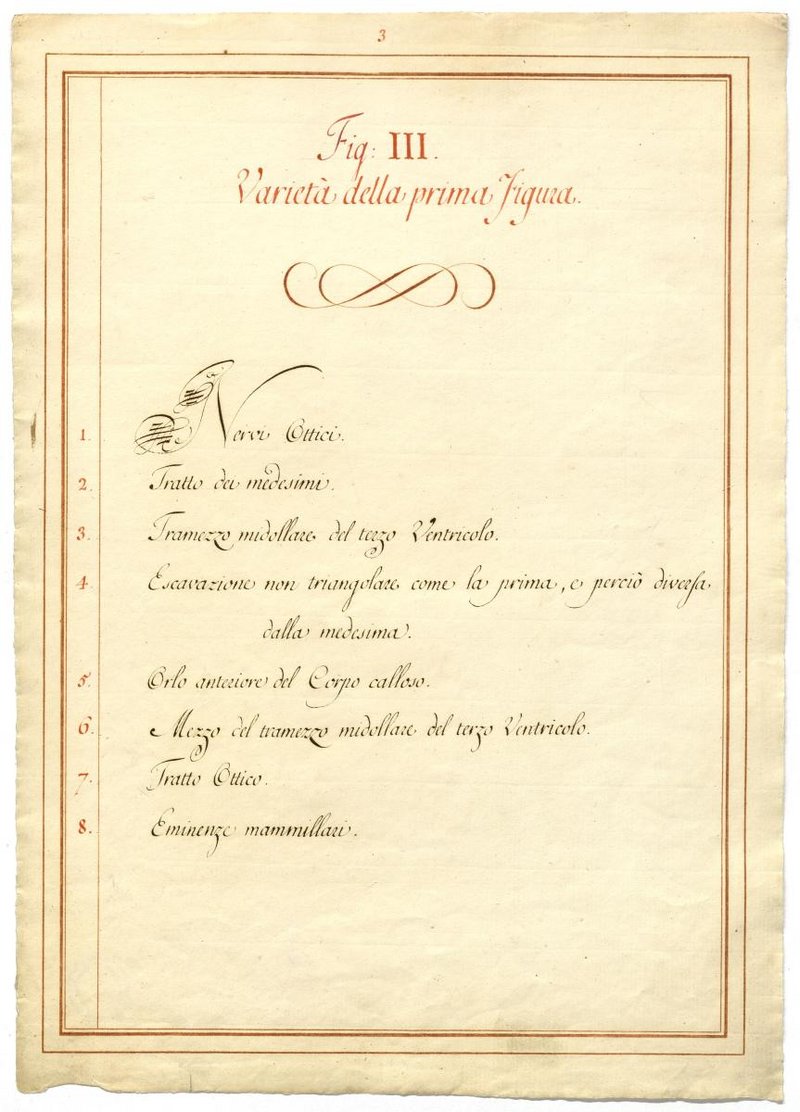 3
Fig: III.
Varietà della prima Figura.
1. Nervi Ottici.
2. Tratto dei medesimi.
3. Tramezzo midollare del terzo Ventricolo.
4. Escavazione non triangolare come la prima, e perciò diversa
dalla medesima.
5. Orlo anteriore del Corpo calloso.
6. Mezzo del tramezzo midollare del terzo Ventricolo.
7. Tratto Ottico.
8. Eminenze mammillari.